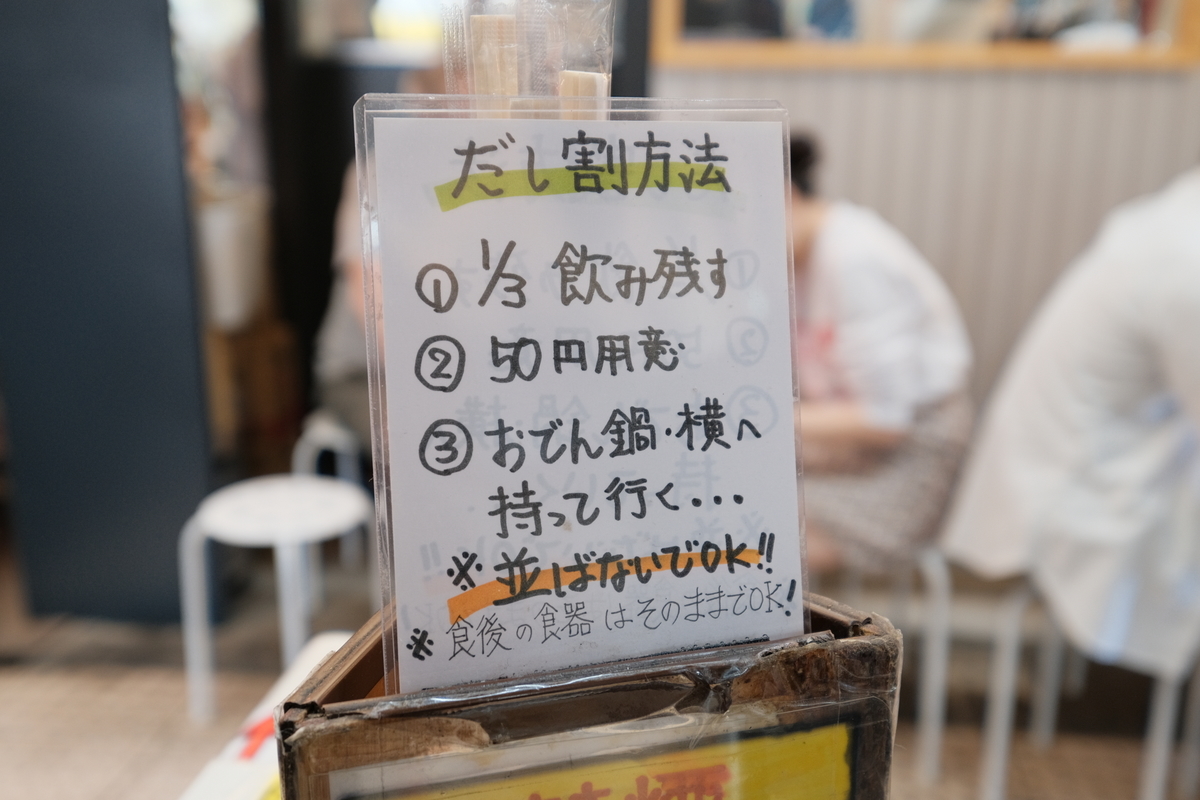 だし割方法
① 1/3 飲み残す
② 50円用意
③ おでん鍋・横へ
持って行く...
※並ばないでOK!!
※食後の食器はそのままでOK!